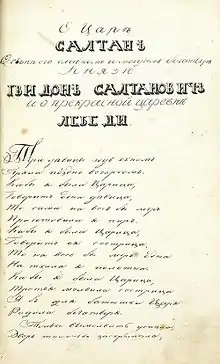 О Царѣ
САЛТАНѢ
о сынѣ его славномъ и могучемъ богатырѣ
Князѣ
ГВИДОНѢ САЛТАНОВИЧѢ
и о прекрасной царевнѣ
ЛЕБЕДИ
Три дѣвицы подъ окномъ
Пряли поздно вечеркомъ.
Кабы я была Царица,
Говоритъ одна дѣвица,
То сама на весь бы міръ
Приготовила я пиръ.
Кабы я была Царица,
Говоритъ ея сестрица,
То на весь бы міръ одна
Наткала я полотна.
Кабы я была Царица,
Третья молвила сестрица
Я бъ для батюшки Царя
Родила богатыря.
Только вымолвить успѣла,
Дверь тихонько заскрыпѣла,